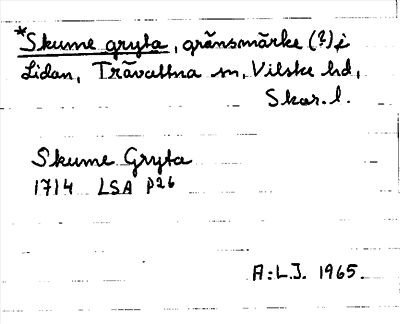 *Skume gryta, gränsmärke (?) i
Lidan, Trävattna sn, Vilske hd,
Skar. l.
Skume Gryta
1714 LSA P26
A:L.J. 1965.